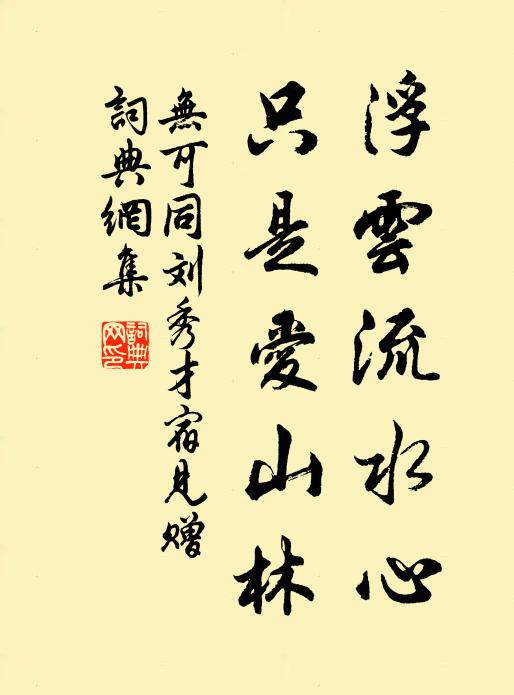 浮雲流水心
只是愛山林
無可同刘秀才宿見赠
詞典網集
詞典網印